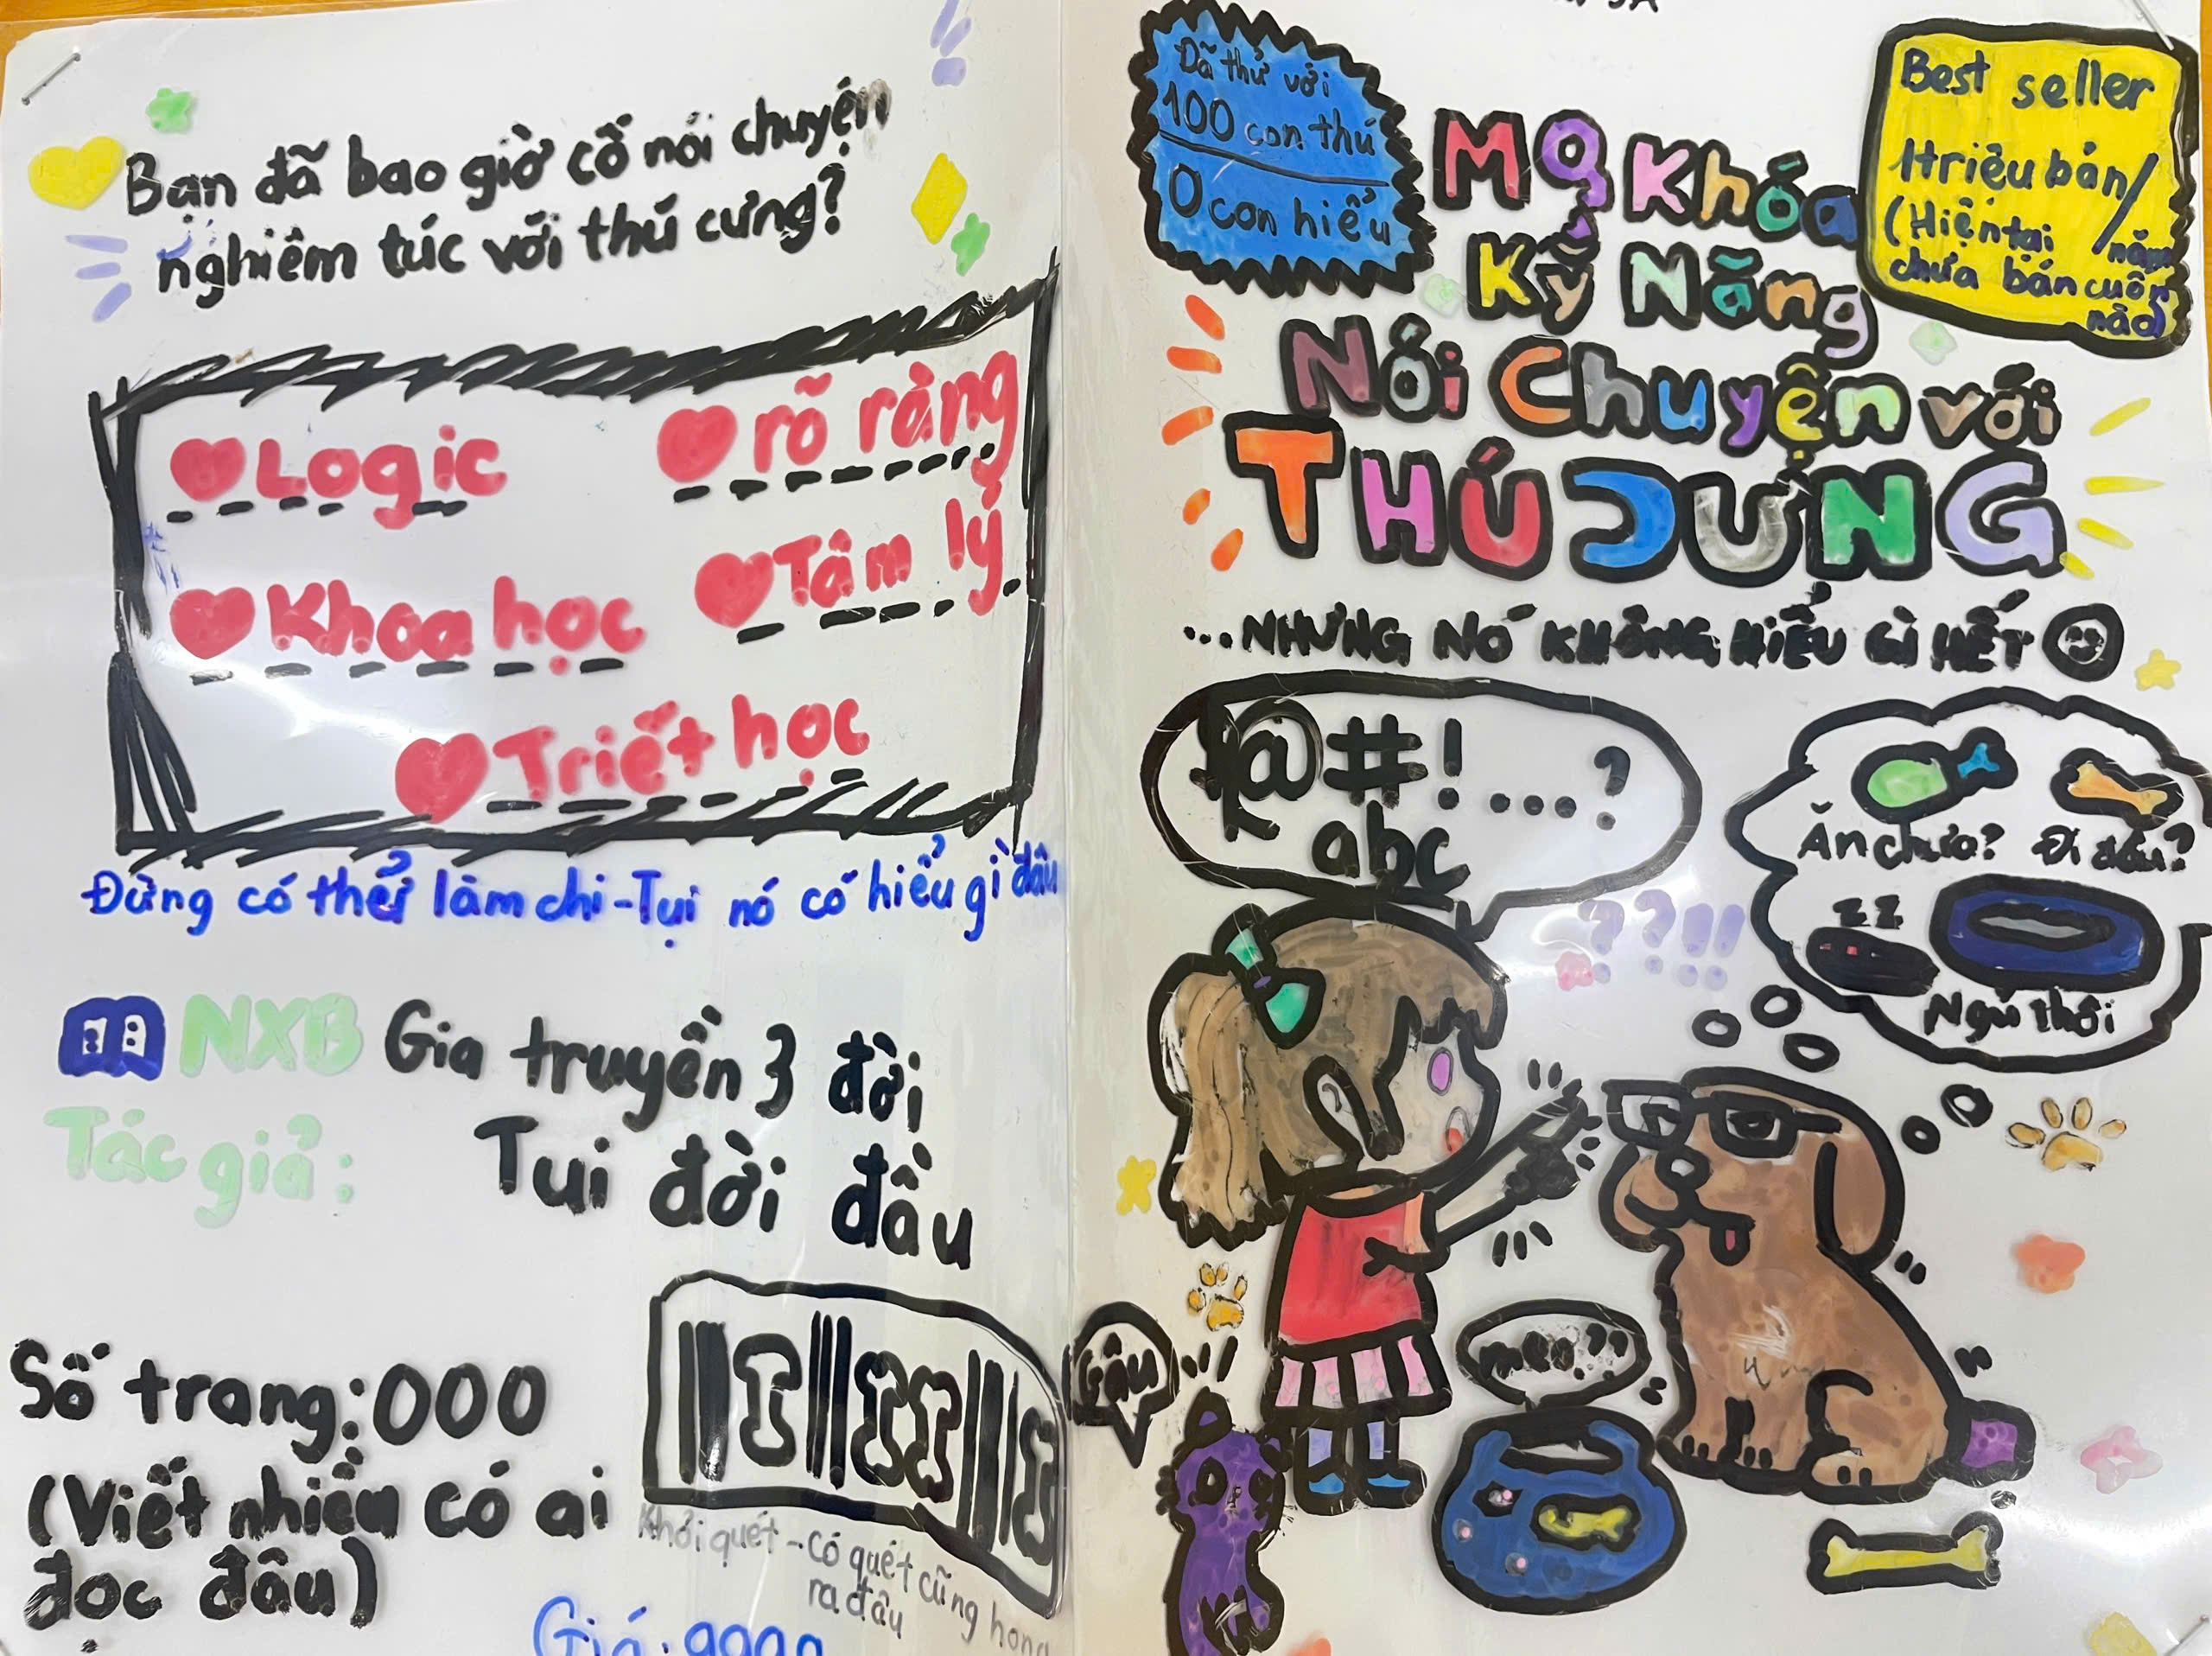 Bạn đã bao giờ cố nói chuyện
nghiêm túc với thú cưng?
Logic
rõ ràng
Khoa học
Tâm lý
Triết học
Đừng có thể làm chi - Tụi nó có hiểu gì đâu
NXB Gia truyền 3 đời
Tác giả: Tui đời đầu
Số trang: 000
(Viết nhiều có ai
đọc đâu)
Khỏi quét - có quét cũng hong
ra đâu
Đã thử với
100 con thú
0 con hiểu
Best seller
1 triệu bản/
năm
(Hiện tại
chưa bán cuốn
nào)
Mở Khóa
Kỹ Năng
Nói Chuyện với
THÚ CƯNG
...NHƯNG NÓ KHÔNG HIỂU GÌ HẾT
@#!...?
abc
Ăn chưa? Đi đâu?
zz
Ngủ thôi
??!!
Gâu
meo??